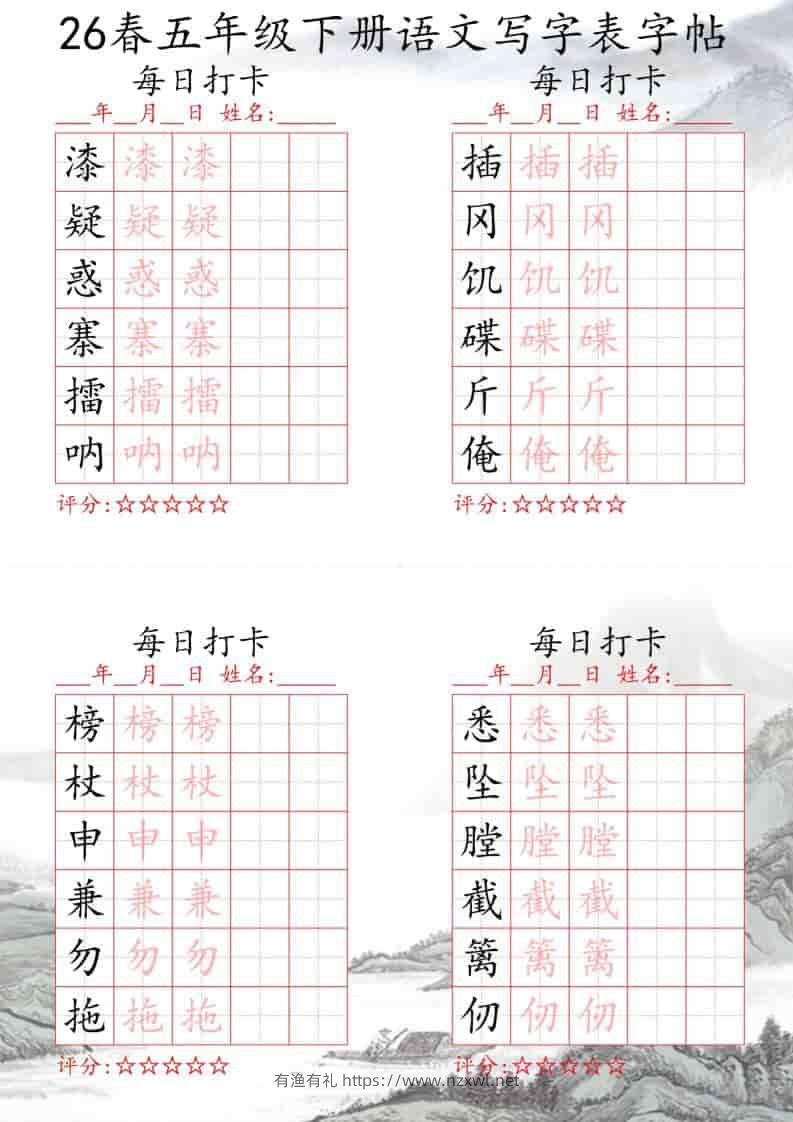 26春五年级下册语文写字表字帖
每日打卡
___年__月__日 姓名:_____
漆漆漆
疑疑疑
惑惑惑
寨寨寨
擂擂擂
呐呐呐
评分:☆☆☆☆☆
每日打卡
___年__月__日 姓名:_____
插插插
冈冈冈
饥饥饥
碟碟碟
斤斤斤
俺俺俺
评分:☆☆☆☆☆
每日打卡
___年__月__日 姓名:_____
榜榜榜
杖杖杖
申申申
兼兼兼
勿勿勿
拖拖拖
评分:☆☆☆☆☆
每日打卡
___年__月__日 姓名:_____
悉悉悉
坠坠坠
膛膛膛
截截截
篱篱篱
仞仞仞
评分:☆☆☆☆☆
有渔有礼 https://www.nzxwl.net